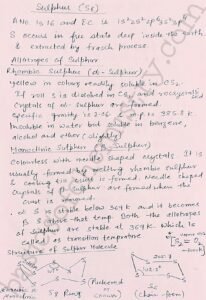 Sulphur (S8)
A No. is 16 and EC is 1s²2s²2p⁶3s²3p⁴
S occurs in free state deep inside the earth
& extracted by frasch process.
Allotropes of Sulphur
Rhombic Sulphur (α- Sulphur)
Yellow in colour readily soluble in CS2.
If roll S is dissolved in CS2 and
Crystals of α- Sulphur are formed.
Specific gravity is 2.06 385.8 K
Insoluble in water but soluble in benzene,
alcohol and ether (slightly)
Monoclinic Sulphur (Sulphur)
Colourless with needle shaped crystals. It is
usually formed by melting rhombic Sulphur
& cooling till crust is formed. Needle shaped
Crystals of Sulphur are formed when the
crust is removed.
α S is stable below 369 K and it becomes
S above that temp. Both the allotropes
of Sulphur are stable at 369 K. Which is
called as transition temperature
Structure of Sulphur Molecule
S8 Ring
S8 (Puckered
crown)